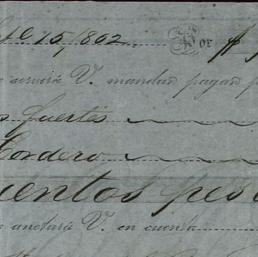 15, 1862. Por $
servirá V. mandar pagar p
fuertes
Cordero
uentos pesos
anotará V. en cuenta